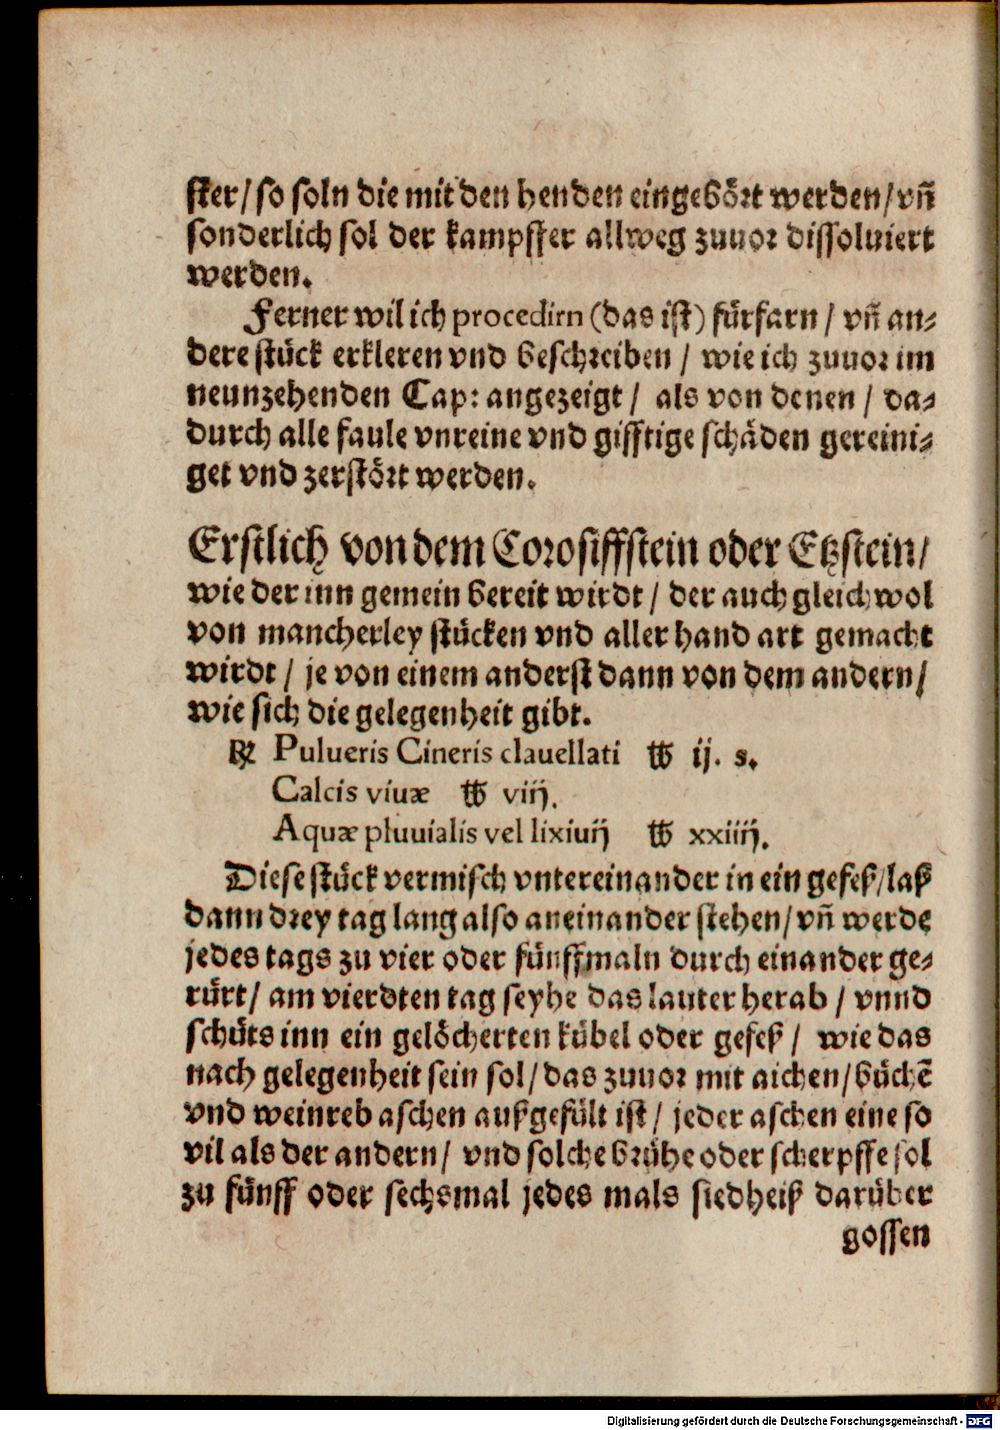 ffer / so soln die mit den henden eingebört werden / vñ
sonderlich sol der kampffer allweg zuuor dissoluiert
werden.
Ferner wil ich procedirn (das ist) fürfarn / vñ an⸗
dere stück erkleren vnd beschreiben / wie ich zuuor im
neunzehenden Cap: angezeigt / als von denen / da⸗
durch alle faule vnreine vnd gifftige schäden gereini⸗
get vnd zerstört werden.
Erstlich von dem Corosiffstein oder Etzstein /
wie der inn gemein bereit wirdt / der auch gleichwol
von mancherley stücken vnd aller hand art gemacht
wirdt / je von einem anderst dann von dem andern /
wie sich die gelegenheit gibt.
℞ Pulueris Cineris clauellati ℔ ij. s.
Calcis viuæ ℔ viij.
Aquæ pluuialis vel lixiuij ℔ xxiiij.
Diese stück vermisch vntereinander in ein gefeß / laß
dann drey tag lang also aneinander stehen / vñ werde
jedes tags zu vier oder fünffmaln durch einander ge⸗
rürt / am vierdten tag seyhe das lauter herab / vnnd
schüts inn ein gelöcherten kübel oder gefeß / wie das
nach gelegenheit sein sol / das zuuor mit aichen / büchē
vnd weinreb aschen außgefült ist / jeder aschen eine so
vil als der andern / vnd solche brühe oder scherpffe sol
zu fünff oder sechsmal jedes mals siedheiß darüber
gossen
Digitalisierung gefördert durch die Deutsche Forschungsgemeinschaft - DFG